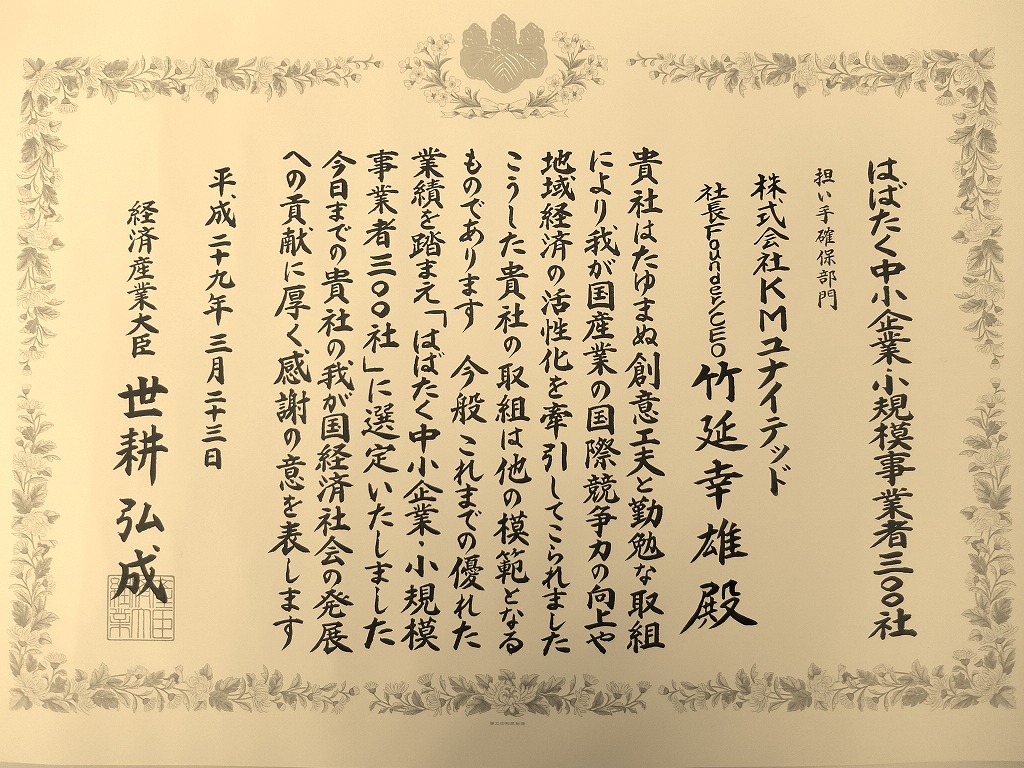 はばたく中小企業・小規模事業者三〇〇社
担い手確保部門
株式会社KMユナイテッド
社長Founder/CEO 竹延幸雄殿
貴社はたゆまぬ創意工夫と勤勉な取組
により我が国産業の国際競争力の向上や
地域経済の活性化を牽引してこられました
こうした貴社の取組は他の模範となる
ものであります 今般これまでの優れた
業績を踏まえ「はばたく中小企業・小規模
事業者三〇〇社」に選定いたしました
今日までの貴社の我が国経済社会の発展
への貢献に厚く感謝の意を表します
平成二十九年三月二十三日
経済産業大臣 世耕弘成